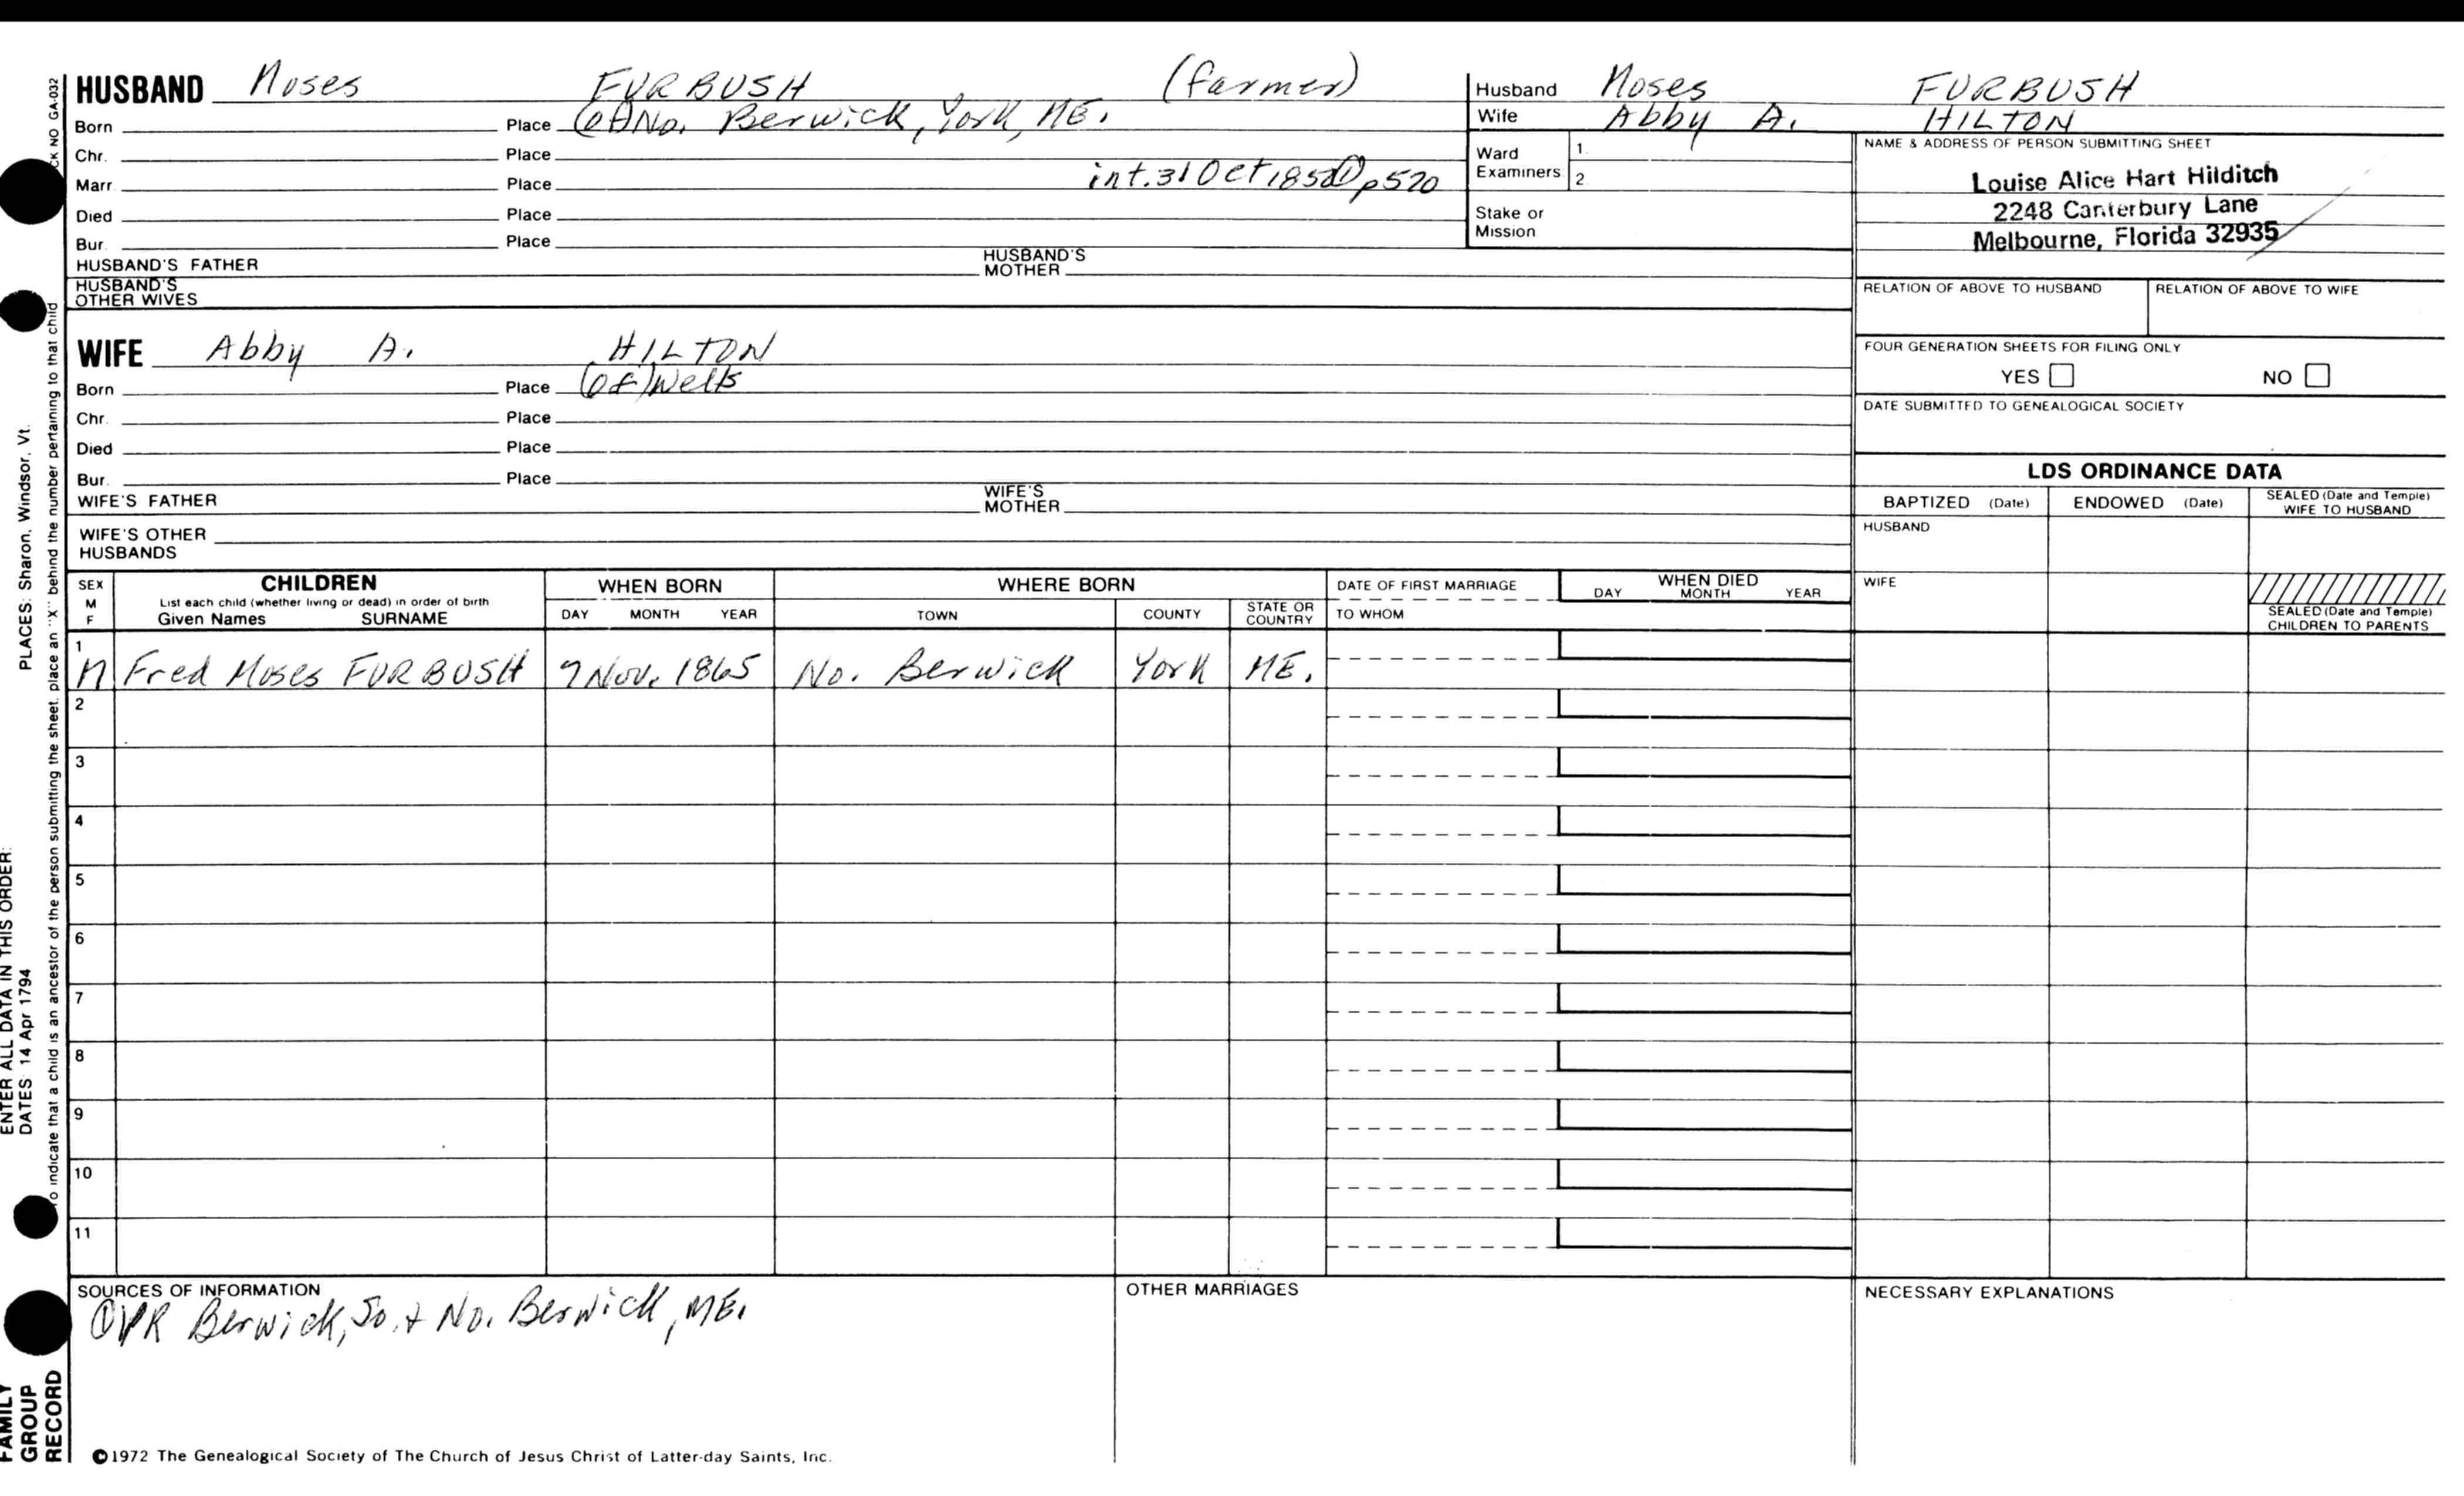 HUSBAND Moses FURBUSH (farmer)
Born Place (of) No. Berwick, York, ME.
Chr. Place
Marr. Place int. 31 Oct 185 ① p 520
Died Place
Bur. Place
HUSBAND'S FATHER HUSBAND'S MOTHER
HUSBAND'S OTHER WIVES
WIFE Abby A. HILTON
Born Place (of) Wells
Chr. Place
Died Place
Bur. Place
WIFE'S FATHER WIFE'S MOTHER
WIFE'S OTHER HUSBANDS
Husband Moses FURBUSH
Wife Abby A. HILTON
Ward Examiners 1. 2.
Stake or Mission
NAME & ADDRESS OF PERSON SUBMITTING SHEET
Louise Alice Hart Hilditch
2248 Canterbury Lane
Melbourne, Florida 32935
RELATION OF ABOVE TO HUSBAND RELATION OF ABOVE TO WIFE
FOUR GENERATION SHEETS FOR FILING ONLY
YES NO
DATE SUBMITTED TO GENEALOGICAL SOCIETY
LDS ORDINANCE DATA
BAPTIZED (Date) ENDOWED (Date) SEALED (Date and Temple) WIFE TO HUSBAND
HUSBAND
WIFE
SEALED (Date and Temple) CHILDREN TO PARENTS
SEX M F
CHILDREN
List each child (whether living or dead) in order of birth
Given Names SURNAME
WHEN BORN
DAY MONTH YEAR
WHERE BORN
TOWN COUNTY STATE OR COUNTRY
DATE OF FIRST MARRIAGE
TO WHOM
WHEN DIED
DAY MONTH YEAR
1 M Fred Moses FURBUSH 7 Nov. 1865 No. Berwick York ME.
2
3
4
5
6
7
8
9
10
11
SOURCES OF INFORMATION
① VR Berwick, So. + No. Berwick, ME.
OTHER MARRIAGES
NECESSARY EXPLANATIONS
©1972 The Genealogical Society of The Church of Jesus Christ of Latter-day Saints, Inc.
FAMILY GROUP RECORD
ENTER ALL DATA IN THIS ORDER:
DATES: 14 Apr 1794
PLACES: Sharon, Windsor, Vt.
To indicate that a child is an ancestor of the person submitting the sheet, place an "X" behind the number pertaining to that child
CK NO GA-032